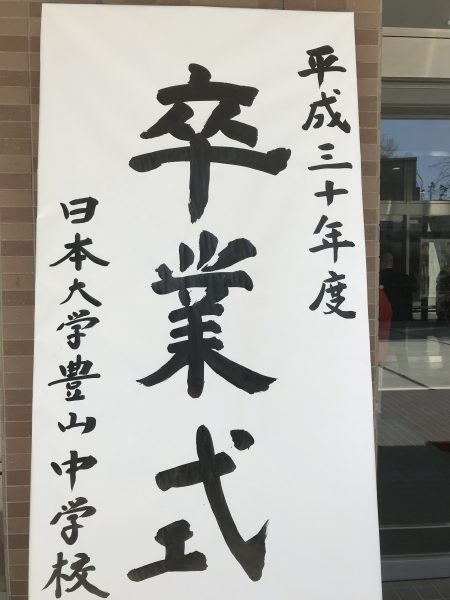 平成三十年度
卒業式
日本大学豊山中学校